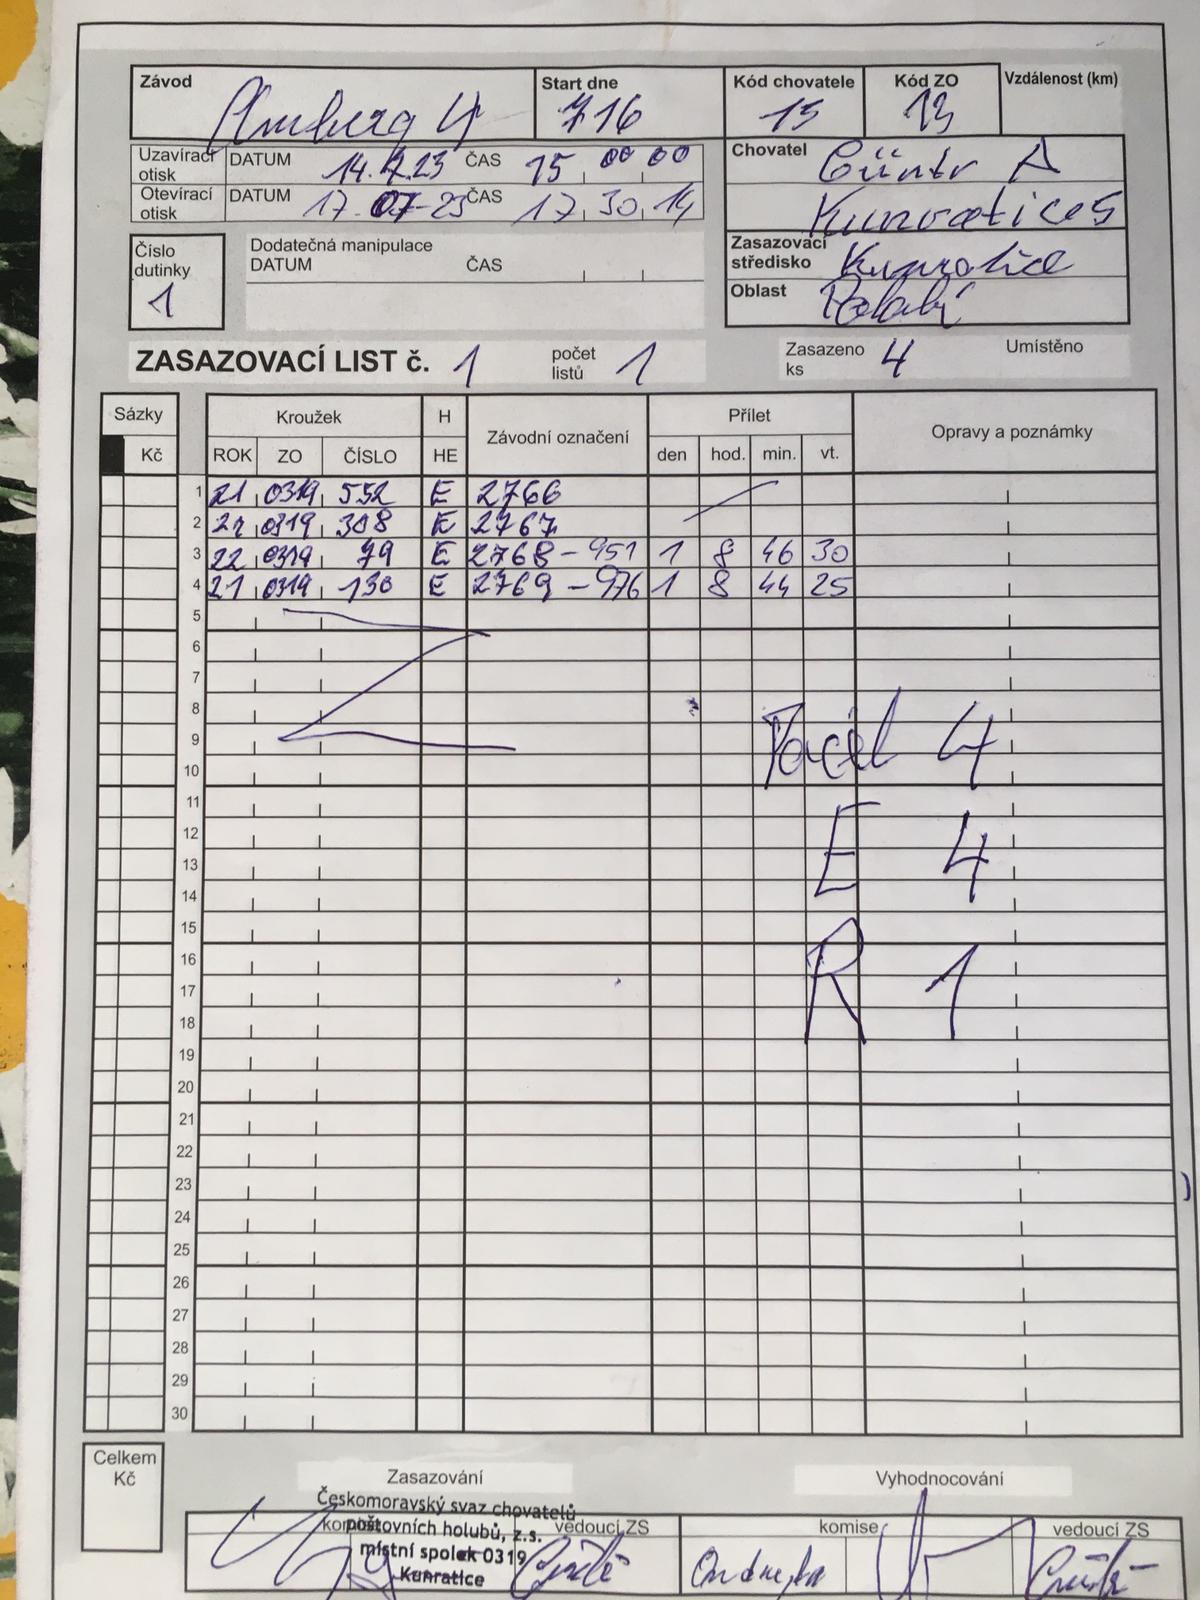 Závod Start dne Kód chovatele Kód ZO Vzdálenost (km)
Amberg 4 716 15 13
Uzavírací otisk DATUM 14.7.23 ČAS 15 00 00
Otevírací otisk DATUM 17.07-23 ČAS 17 30 14
Chovatel Güntr A
Kunratice 5
Zasazovací středisko Kunratice
Oblast Polabí
Číslo dutinky 1
Dodatečná manipulace
DATUM ČAS
ZASAZOVACÍ LIST č. 1 počet listů 1 Zasazeno ks 4 Umístěno
Sázky Kroužek H Závodní označení Přílet Opravy a poznámky
Kč ROK ZO ČÍSLO HE den hod. min. vt.
1 21 0319 552 E 2766
2 21 0319 308 E 2767
3 22 0319 79 E 2768 - 951 1 8 46 30
4 21 0319 130 E 2769 - 976 1 8 44 25
5
6
7
8
9
10
11
12
13
14
15
16
17
18
19
20
21
22
23
24
25
26
27
28
29
30
4
E 4
R 1
Celkem Kč
Zasazování Vyhodnocování
Českomoravský svaz chovatelů
poštovních holubů, z.s.
místní spolek 0319
Kunratice
komise vedoucí ZS komise vedoucí ZS